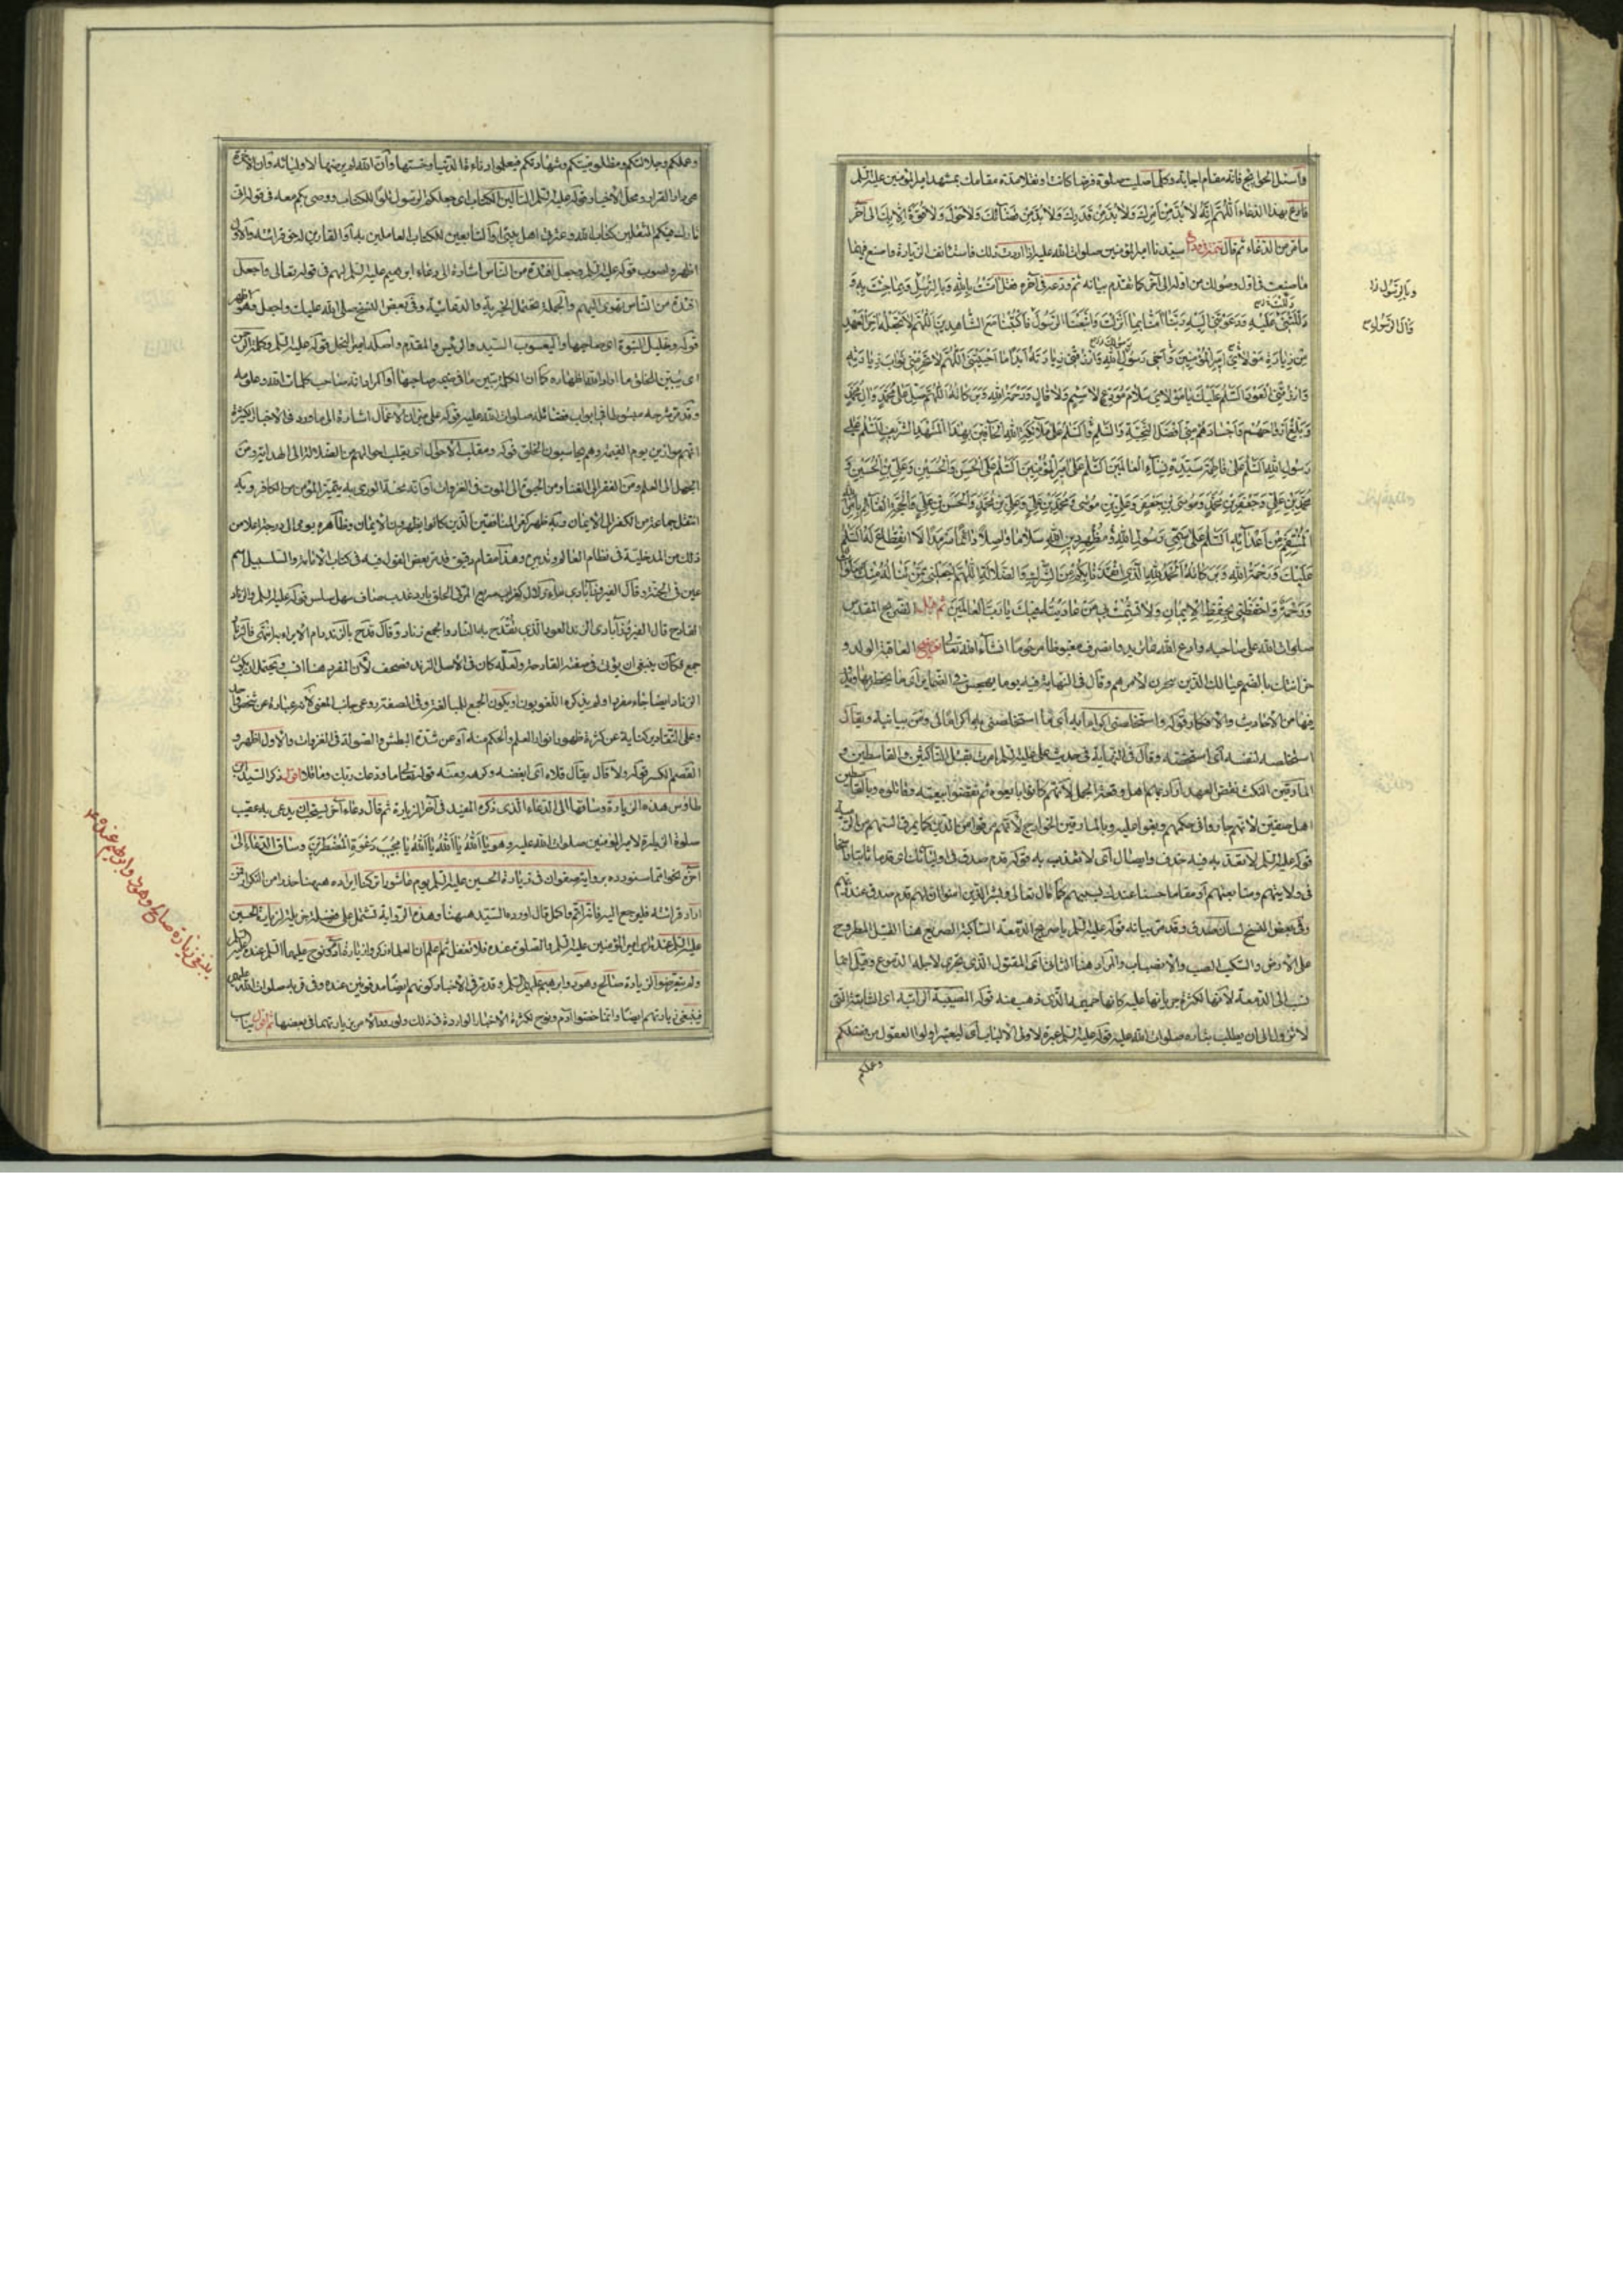 واسئل الحوائج فانه مقام اجابة وكلما صليت صلوة فرضا كانت او نفلا مدة مقامك بمشهد امير المؤمنين عليه السلم
فادع بهذا الدعاء اللهم انه لا بد من امرك ولا بد من قدرك ولا بد من قضائك ولا حول ولا قوة الا بك الى آخر
ما مر من الدعاء ثم قال سيدنا امير المؤمنين صلوات الله عليه اذا اردت ذلك فاستأنف الزيارة واصنع فيها
ما صنعت في اول وصولك من اوله الى آخره كما تقدم بيانه ثم ودعه في آخره فقل آمنت بالله وبالرسل وبما جئت به و
دللتني عليه ودعوتني اليه ربنا آمنا بما انزلت واتبعنا الرسول فاكتبنا مع الشاهدين اللهم لا تجعله آخر العهد
من زيارة مولاي امير المؤمنين واخي رسول الله وارزقني زيارته ابدا ما احييتني اللهم لا تحرمني ثواب زيارته
وارزقني العود السلم عليك يا مولاي سلام مودع لا سئم ولا قال ورحمة الله وبركاته اللهم صل على محمد وآل محمد
وبلغ ارواحهم واجسادهم مني افضل التحية والسلم والسلم على ملائكة الله الحافين بهذا المشهد الشريف السلم على
رسول الله السلم على فاطمة سيدة نساء العالمين السلم على امير المؤمنين السلم على الحسن والحسين وعلي بن الحسين و
محمد بن علي وجعفر بن محمد وموسى بن جعفر وعلي بن موسى ومحمد بن علي وعلي بن محمد والحسن بن علي والحجة القائم بامر الله
المنتقم من اعدائه السلم على سمي رسول الله ومظهر دين الله سلاما واصلا دائما سرمدا لا انقطاع له السلم
عليك ورحمة الله وبركاته الحمد لله الذي انقذنا بكم من الشرك والضلالة اللهم اجعلني ممن تناله منك صلوات
ورحمة واحفظني بحفظ الايمان ولا تشمت بي من عاديته فيك يا رب العالمين ثم قبل الضريح المقدس
صلوات الله على صاحبه وادع الله بما تريد وانصرف مغبوطا مرحوما انشاء الله تعالى توضيح العاقبة الولد و
حزانتك بالضم عيالك الذين تتحزن لامرهم وقال في النهاية فيه يوما يهجس في الضماير اى ما يخطر بها ويدور
فيها من الاحاديث والافكار قوله واستخلصني اكراما به اى ما استخلصني به اكراما لي ومن بيانية ويقال
استخلصه لنفسه اى استخصه وقال في النهاية في حديث علي عليه السلم امرت بقتل الناكثين والقاسطين و
المارقين النكث نقض العهد اراد بهم اهل وقعة الجمل لانهم كانوا بايعوه ثم نقضوا بيعته وقاتلوه وبالقاسطين
اهل صفين لانهم جاروا في حكمهم وبغوا عليه وبالمارقين الخوارج لانهم مرقوا من الدين كما يمرق السهم من الرمية
قوله عليه السلم لا نعذ به فيه حذف وايصال اى لا تعذب به قوله قدم صدق في اوليائك اى قدما ثابتا راسخا
في ولايتهم ومتابعتهم او مقاما حسنا عندك بسببهم كما قال تعالى وبشر الذين امنوا ان لهم قدم صدق عند ربهم
وفي بعض النسخ لسان صدق وقد مر بيانه قوله عليه السلم يا صريع الدمعة الساكبة الصريع هنا القتيل المطروح
على الارض والسكب الصب والانصباب والمراد هنا الثاني اى المقتول الذي تجري لاجله الدموع وقيل انما
نسب الى الدمعة لانها لكثرة جريانها عليه كانها حميمه الذي ذهب منه قوله المصيبة الراتبة اى الثابتة التي
لا تزول الى ان يطلب بثاره صلوات الله عليه قوله عليه السلم عبرة لاولي الالباب اى ليعتبر اولوا العقول من فضلكم
وعلمكم
وبالرسول
قال الرسول
وعلمكم وجلالتكم ومظلوميتكم وشهادتكم فيعلموا دناءة الدنيا وخستها وان الله لم يرضها لاوليائه وان الآخرة
هي دار القرار ومحل الاخيار قوله عليه السلم التالين الكتاب اى جعلكم الرسول تلوا للكتاب ووصى بكم معه في قوله اني
تارك فيكم الثقلين كتاب الله وعترتي اهل بيتي او التابعين للكتاب العاملين به او القارين له حق قرائته والاول
اظهر واصوب قوله عليه السلم وجعل افئدة من الناس اشارة الى دعاء ابرهيم عليه السلم لهم في قوله تعالى واجعل
افئدة من الناس تهوى اليهم والجملة تحتمل الخبرية والدعائية وفي بعض النسخ صلى الله عليك واجعل وهو اظهر
قوله وخليل النبوة اى صاحبها واليعسوب السيد والرئيس والمقدم واصله امير النحل قوله عليه السلم وكلمة الرحمن
اى يبين للخلق ما اراد الله اظهاره كما ان الكلم يبين ما في ضمير صاحبها او المراد انه صاحب كلمات الله وعلومه
وقد مر شرحه مبسوطا في ابواب فضائله صلوات الله عليه قوله على ميزان الاعمال اشارة الى ما ورد في الاخبار الكثيرة
انهم موازين يوم القيمة وهم يحاسبون الخلق قوله ومقلب الاحوال اى يقلب احوالهم من الضلالة الى الهداية ومن
الجهل الى العلم ومن الفقر الى الغنا ومن الحيوة الى الموت في الغزوات او انه محنة الورى به يتميز المؤمن من الكافر وبه
انتقل جماعة من الكفر الى الايمان وبه ظهر كفر المنافقين الذين كانوا يظهرون الايمان وظاهره يومي الى درجة اعلا من
ذلك من المدخلية في نظام العالم وتدبيره وهذا مقام دقيق قد مر بعض القول فيه في كتاب الامامة والسلسبيل اسم
عين في الجنة وقال الفيروزآبادى ماء زلال كغراب سريع المر في الحلق بارد عذب صاف سهل سلس قوله عليه السلم والزناد
القادح قال الفيروزآبادى الزند العود الذي تقتدح به النار والجمع زناد وقال قدح بالزند رام الايراء به انتهى فالزناد
جمع فكان ينبغي ان يؤنث في صفته القادحة ولعله كان في الاصل الزند فصحف لان المفرد هنا انسب ويحتمل ان يكون
الزناد ايضا جاء مفردا ولم يذكره اللغويون او يكون الجمع للمبالغة وفي الصفة روعى جانب المعنى لانه عبارة عن شخص واحد
وعلى التقادير كناية عن كثرة ظهور انوار العلم والحكم منه او عن شدة البطش والصولة في الغزوات والاول اظهر و
القصم الكسر قوله ولا قال يقال قلاه اى ابغضه وكرهه ومنه قوله تعالى ما ودعك ربك وما قلا اقول ذكر السيد ابن
طاوس هذه الزيارة وساقها الى الدعاء الذي ذكره المفيد في آخر الزيارة ثم قال دعاء آخر يستحب ان يدعى به عقيب
صلوة الزيارة لامير المؤمنين صلوات الله عليه وهو يا الله يا الله يا الله يا مجيب دعوة المضطرين وساق الدعاء الى
آخره نحوا مما سنورده برواية صفوان في زيارة الحسين عليه السلم يوم عاشورا تركنا ايراده ههنا حذرا من التكرار فمن
اراد قرائته فليرجع اليه فانه اتم واكمل قال اورده السيد ههنا وهذه الرواية تشتمل على فضيلة جزيلة لزيارة الحسين
عليه السلم عند راس امير المؤمنين عليه السلم والصلوة عنده فلا تغفل ثم اعلم ان العلماء ذكروا زيارة آدم ونوح عليهما السلم عنده عليه السلم
ولم يتعرضوا لزيارة صالح وهود وابرهيم عليهم السلم وقد مر في الاخبار كونهم ايضا مدفونين عنده وفي قربه صلوات الله عليهم
فينبغي زيارتهم ايضا وانما خصوا آدم ونوح لكثرة الاخبار الواردة في ذلك ولورود الامر بزيارتهما في بعضها ثم اقول
ينبغي زيارة صالح وهود وابرهيم عنده